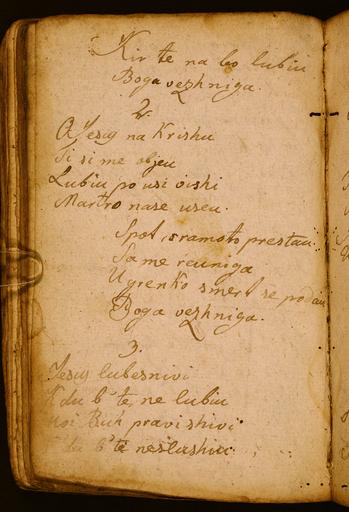 Kir te na bo lubiu
Boga vezhniga.
2.
O Jesus na Krishu
Ti si me objeu
Lubiu po usi vishi
Martro nase useu.
Spot, sramoto prestau
Sa me reuniga
Ugrenko smert se podau
Boga vezhniga.
3.
Jesus lubesnivi
Kdu b' te ne lubiu
moi Buh pravi shivi
kdu b' te neslushau